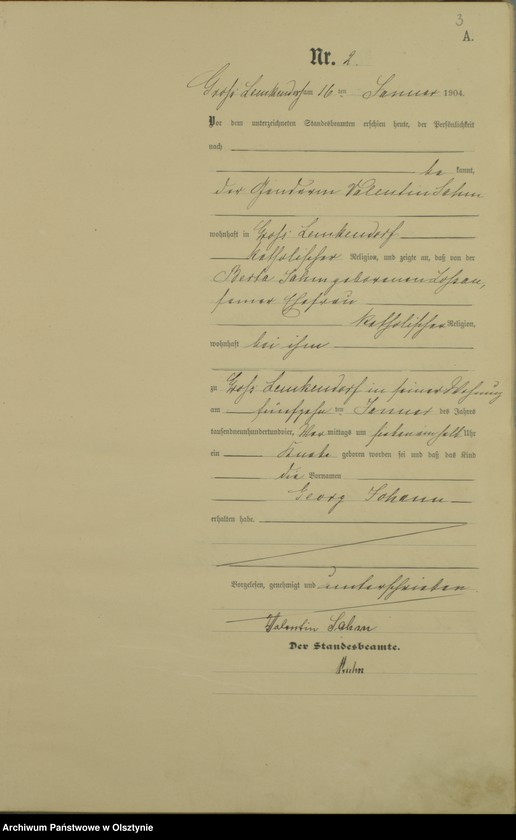 3
A.
Nr. 2.
Groß Lemkendorf am 16 ten Januar 1904.
Vor dem unterzeichneten Standesbeamten erschien heute, der Persönlichkeit
nach
be kannt,
der Gendarm Valentin Sahm
wohnhaft in Groß Lemkendorf
katholischer Religion, und zeigte an, daß von der
Berta Sahm geborenen
seiner Ehefrau
katholischer Religion,
wohnhaft bei ihm
zu Groß Lemkendorf in seiner Wohnung
am fünfzehn ten Januar des Jahres
tausendneunhundertundvier, Vor mittags um Uhr
ein Knabe geboren worden sei und daß das Kind
die Vornamen
Georg Johann
erhalten habe.
Vorgelesen, genehmigt und unterschrieben.
Valentin Sahm
Der Standesbeamte.
Archiwum Państwowe w Olsztynie